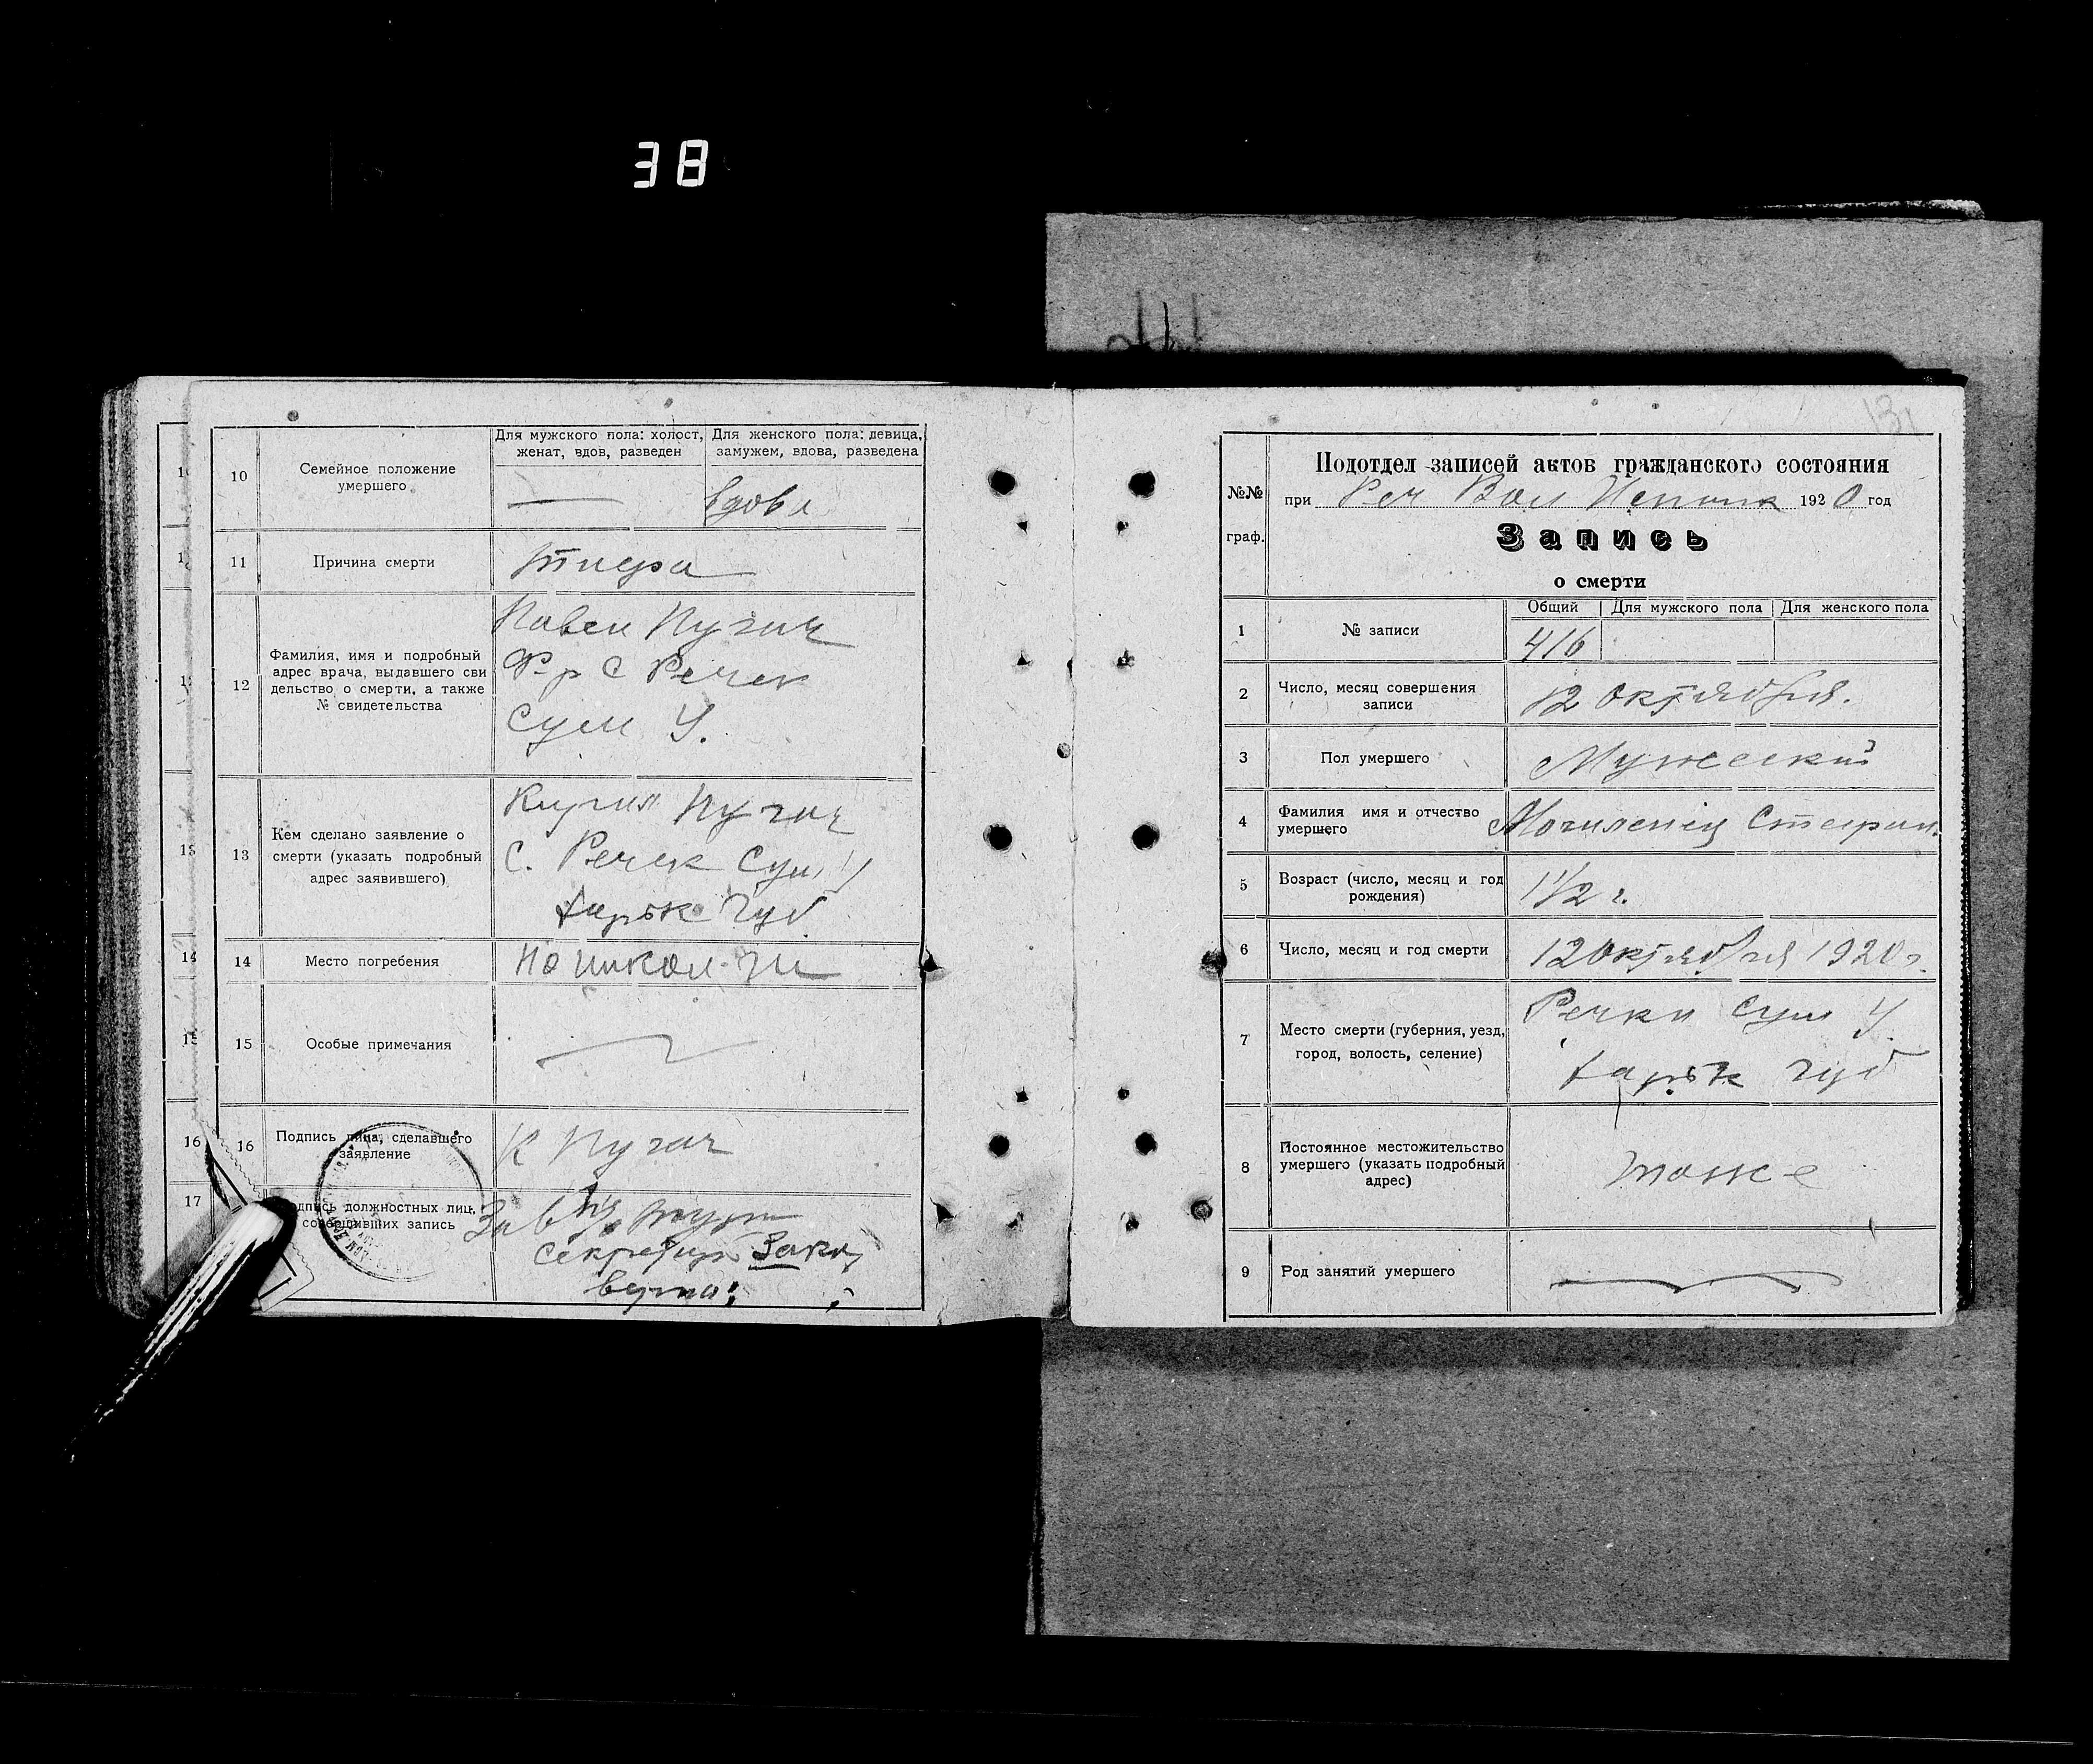 38
10
Семейное положение
умершего
Для мужского пола: холост,
женат, вдов, разведен
Для женского пола: девица,
замужем, вдова, разведена
вдова
11
Причина смерти
тифа
12
Фамилия, имя и подробный
адрес врача, выдавшего сви
дельство о смерти, а также
№ свидетельства
Павел Пугач
Ф-р С Речек
Сум У.
13
Кем сделано заявление о
смерти (указать подробный
адрес заявившего)
Кирил Пугач
С. Речек Сум У
Харьк Губ
14
Место погребения
15
Особые примечания
16
Подпись лица, сделавшего
заявление
К Пугач
17
одпись должностных лиц,
совершивших запись
Зав
Секретарь
верно:
131
№№
граф.
Подотдел записей актов гражданского состояния
при Реч Вол Исполк 1920 год
Запись
о смерти
1
№ записи
Общий
Для мужского пола
Для женского пола
416
2
Число, месяц совершения
записи
12 октября.
3
Пол умершего
Мужеский
4
Фамилия имя и отчество
умершего
Могиленец Стефан.
5
Возраст (число, месяц и год
рождения)
1 1/2 г.
6
Число, месяц и год смерти
12 октября 1920 г.
7
Место смерти (губерния, уезд,
город, волость, селение)
Речки Сум У.
Харьк Губ
8
Постоянное местожительство
умершего (указать подробный
адрес)
тоже
9
Род занятий умершего